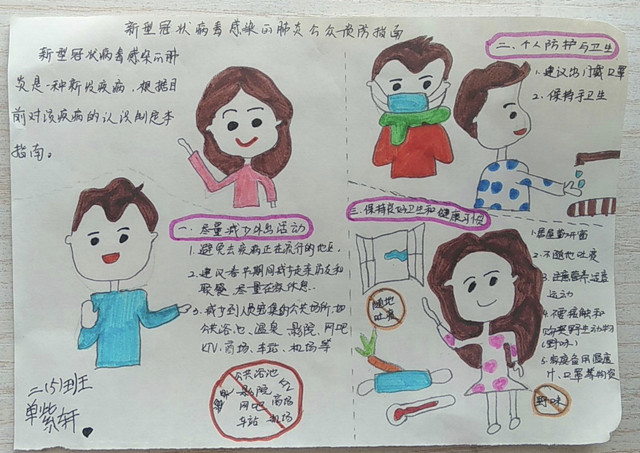 新型冠状病毒感染的肺炎公众预防指南
新型冠状病毒感染的肺
炎是一种新发疾病，根据目
前对该疾病的认识制定本
指南。
一、尽量减少外出活动
1.避免去疾病正在流行的地区。
2.建议春节期间减少走亲访友和
聚餐，尽量在家休息。
3.减少到人员密集的公共场所，如
公共浴池、温泉、影院、网吧
KTV、商场、车站、机场等
公共浴池
影院
网吧 商场
车站 机场
二、个人防护与卫生
1.建议出门戴口罩
2.保持手卫生
三、保持良好卫生和健康习惯
1.居室勤开窗
2.不随地吐痰
3.注意营养适度
运动
4.不要接触和
购买野生动物
(野味)
5.家庭备用温度
计、口罩等物资
随地
吐痰
野味
二(5)班
单紫轩